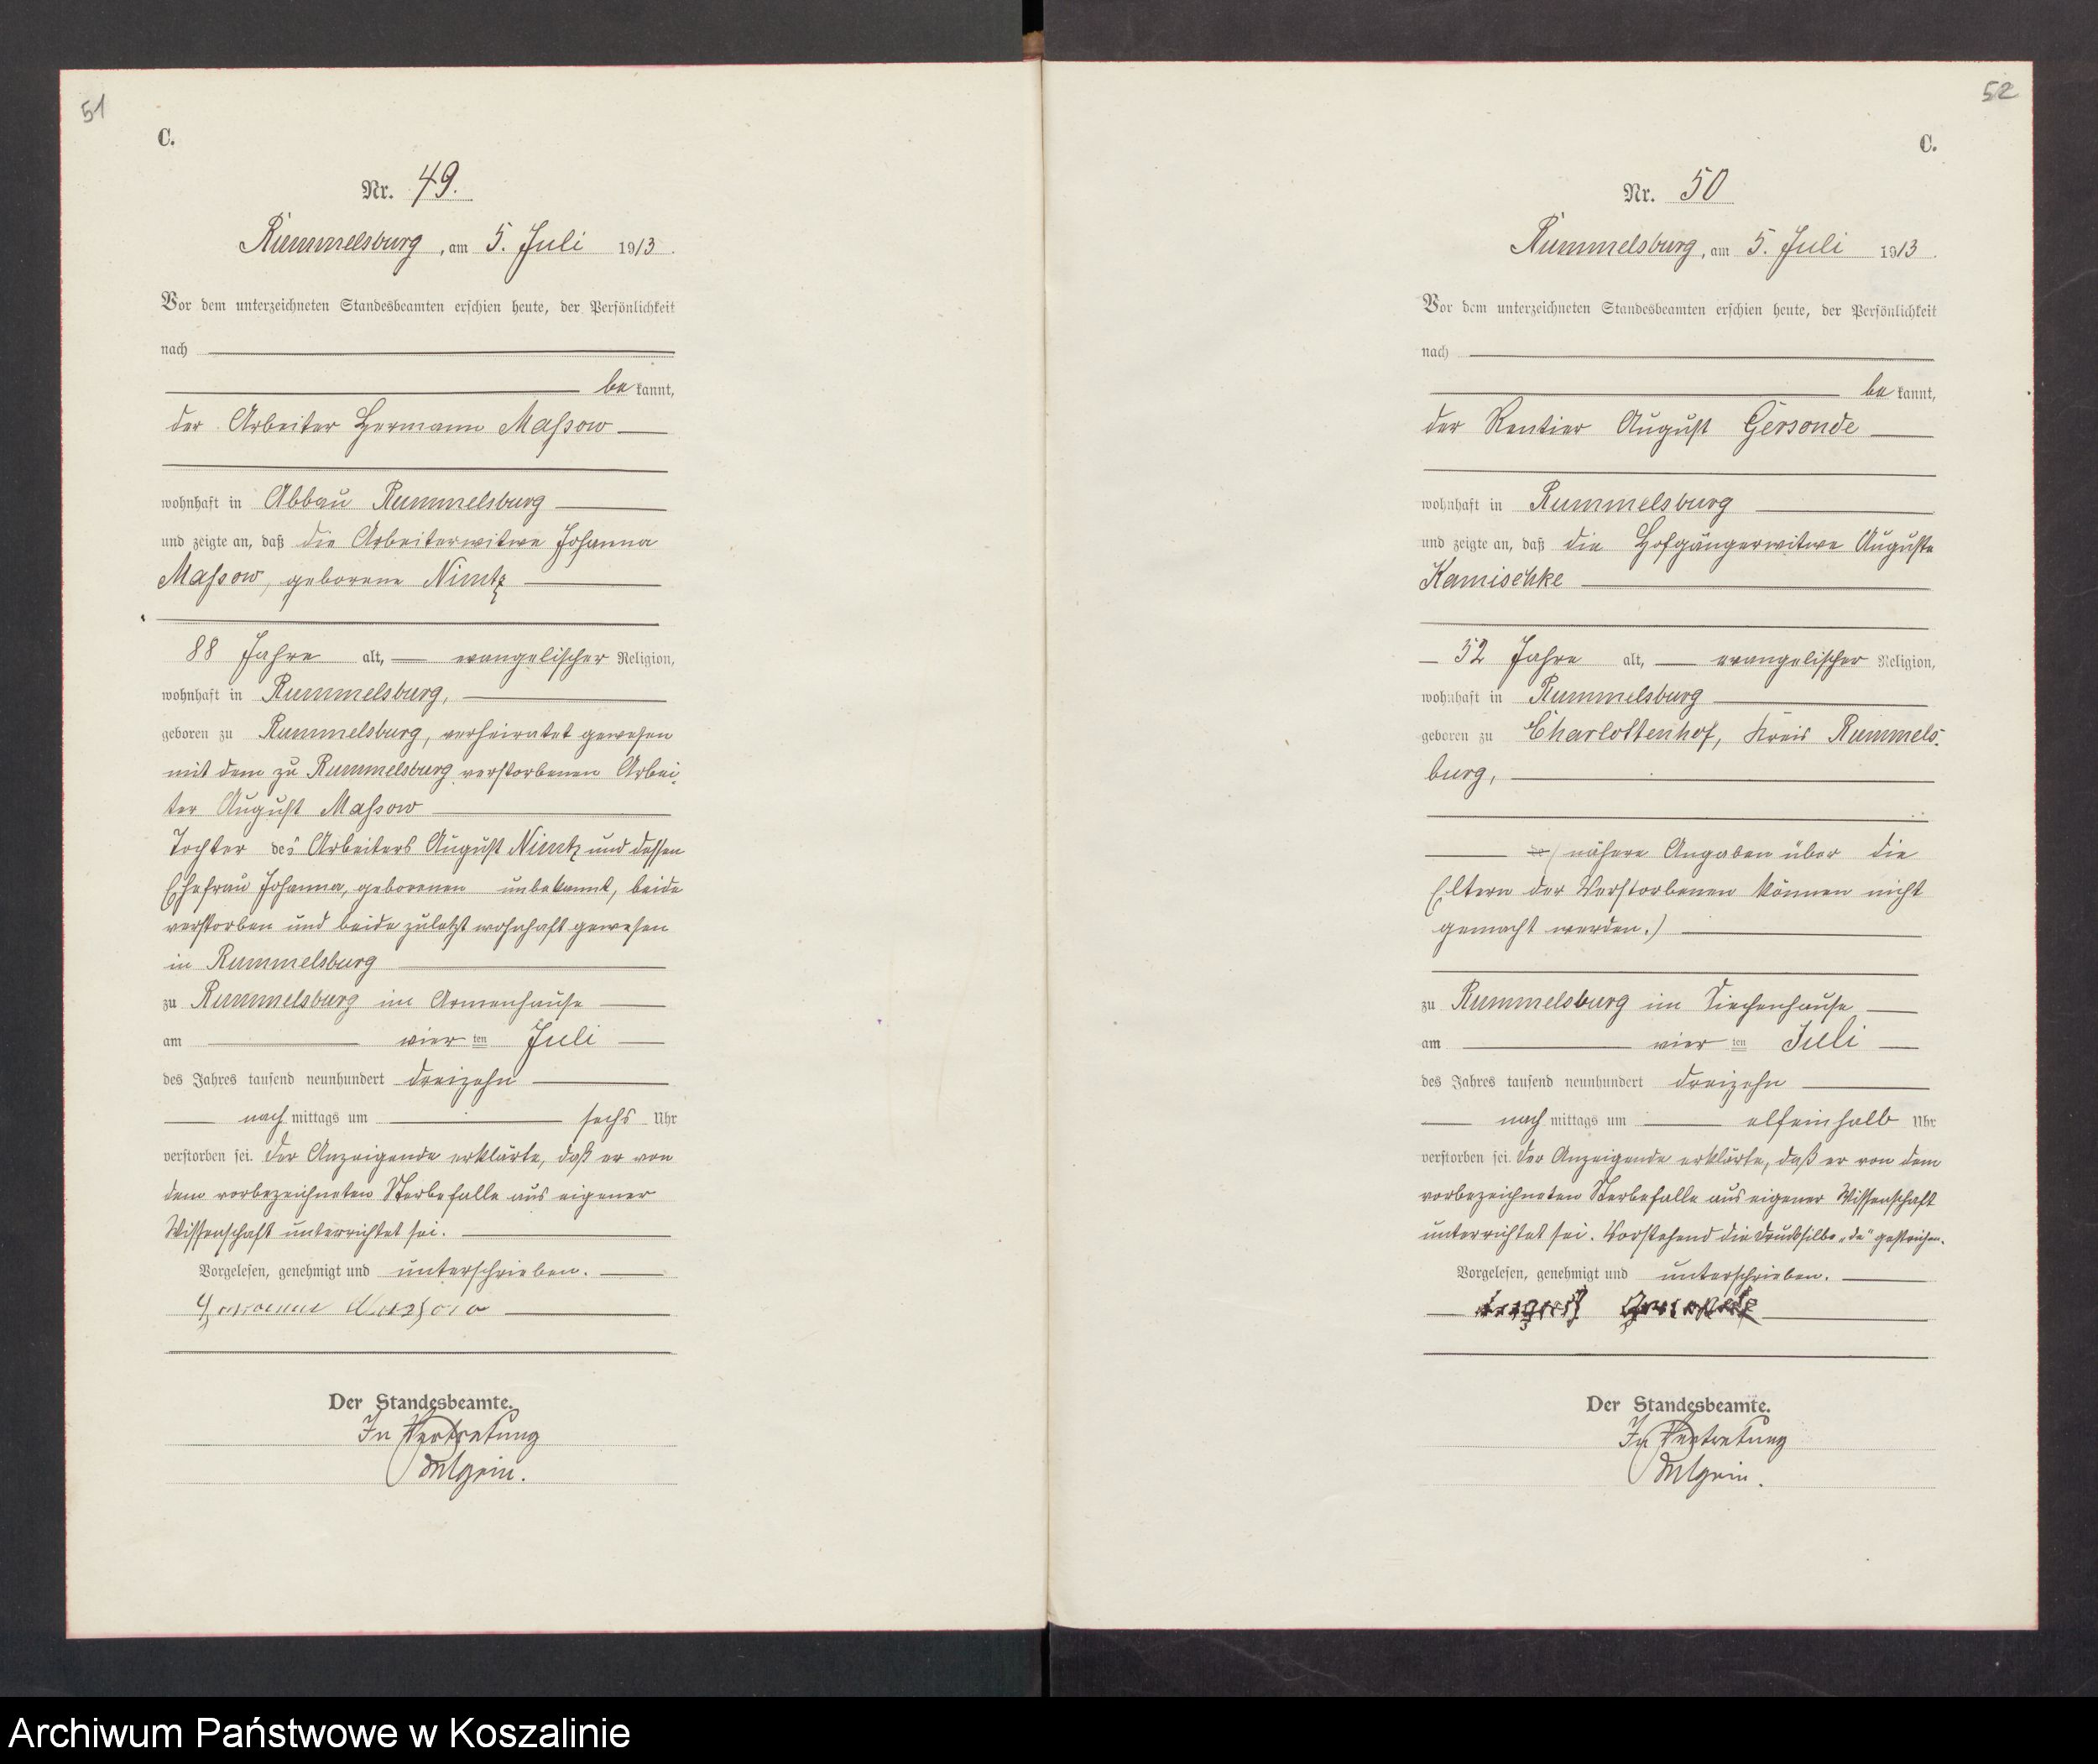 51
C.
Nr. 49.
Rummelsburg, am 5. Juli 1913.
Vor dem unterzeichneten Standesbeamten erschien heute, der Persönlichkeit
nach
be kannt,
der Arbeiter Hermann Maſsow
wohnhaft in Abbau Rummelsburg
und zeigte an, daß die Arbeiterwitwe Johanna
Maſsow, geborene Nimtz
88 Jahre alt, evangelischer Religion,
wohnhaft in Rummelsburg,
geboren zu Rummelsburg, verheiratet gewesen
mit dem zu Rummelsburg verstorbenen Arbei-
ter August Maſsow
Tochter des Arbeiters August Nimtz und dessen
Ehefrau Johanna, geborenen unbekannt, beide
verstorben und beide zuletzt wohnhaft gewesen
in Rummelsburg
zu Rummelsburg im Armenhause
am vier ten Juli
des Jahres tausend neunhundert dreizehn
nach mittags um sechs Uhr
verstorben sei. Der Anzeigende erklärte, daß er von
dem vorbezeichneten Sterbefalle aus eigener
Wissenschaft unterrichtet sei.
Vorgelesen, genehmigt und unterschrieben.
Hermann Massow
Der Standesbeamte.
In Vertretung
52
C.
Nr. 50
Rummelsburg, am 5. Juli 1913.
Vor dem unterzeichneten Standesbeamten erschien heute, der Persönlichkeit
nach
be kannt,
der Rentier August Gersonde
wohnhaft in Rummelsburg
und zeigte an, daß die Hofgängerwitwe Auguste
Kamischke
52 Jahre alt, evangelischer Religion,
wohnhaft in Rummelsburg
geboren zu Charlottenhof, Kreis Rummels-
burg,
de (nähere Angaben über die
Eltern der Verstorbenen können nicht
gemacht werden.)
zu Rummelsburg im Siechenhause
am vier ten Juli
des Jahres tausend neunhundert dreizehn
nach mittags um elfeinhalb Uhr
verstorben sei. Der Anzeigende erklärte, daß er von dem
vorbezeichneten Sterbefalle aus eigener Wissenschaft
unterrichtet sei. Vorstehend die Drucksilbe „de" gestrichen.
Vorgelesen, genehmigt und unterschrieben.
August Gersonde
Der Standesbeamte.
In Vertretung
Archiwum Państwowe w Koszalinie